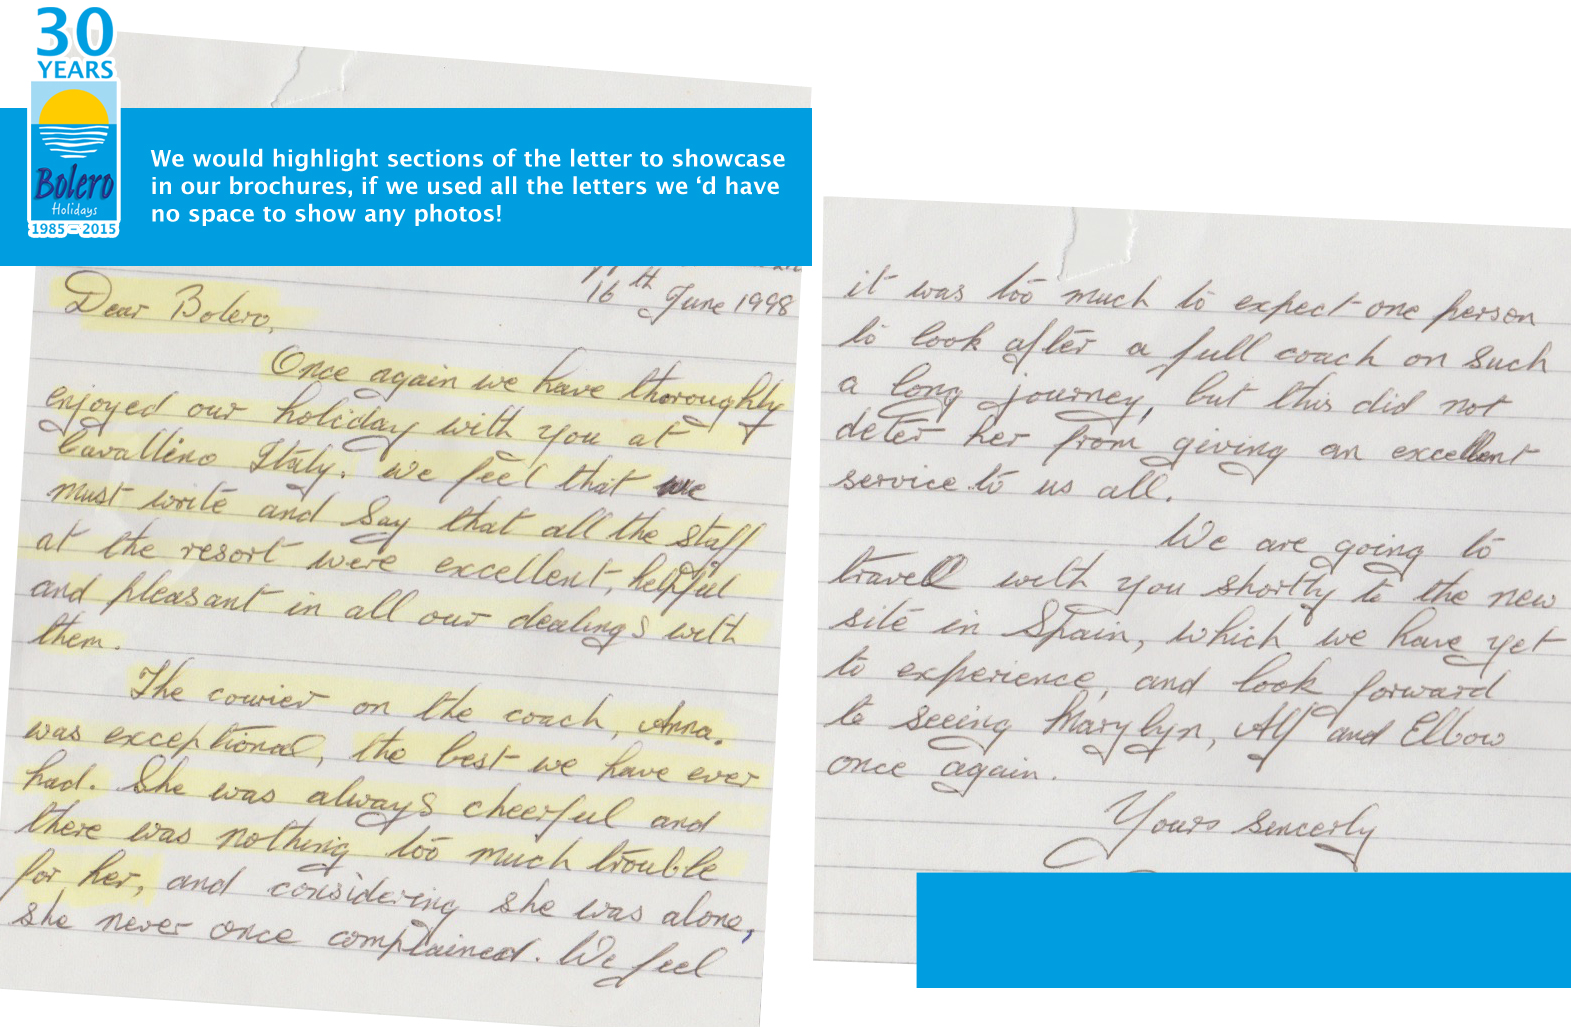 30
YEARS
Bolero
Holidays
1985 – 2015
We would highlight sections of the letter to showcase
in our brochures, if we used all the letters we ‘d have
no space to show any photos!
16th June 1998
Dear Bolero,
Once again we have thoroughly
enjoyed our holiday with you at
Cavallino Italy. We feel that we
must write and say that all the staff
at the resort were excellent, helpful
and pleasant in all our dealings with
them.
The courier on the coach, Anna.
was exceptional, the best we have ever
had. She was always cheerful and
there was nothing too much trouble
for her, and considering she was alone,
she never once complained. We feel
it was too much to expect one person
to look after a full coach on such
a long journey, but this did not
deter her from giving an excellent
service to us all.
We are going to
travel with you shortly to the new
site in Spain, which we have yet
to experience, and look forward
to seeing Marylyn, Alf and Elbow
once again.
Yours sincerly